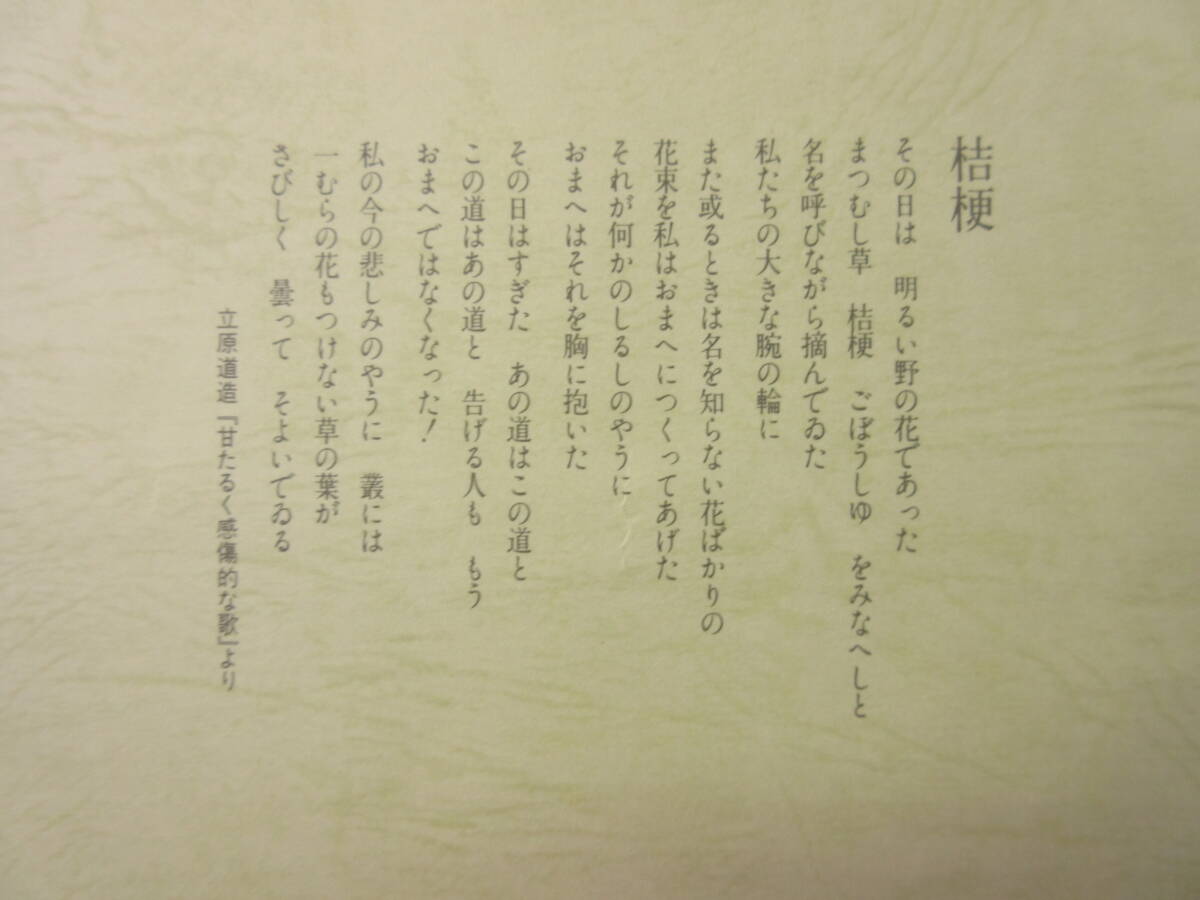 桔梗
その日は　明るい野の花であった
まつむし草　桔梗　ごぼうしゆ　をみなへしと
名を呼びながら摘んでゐた
私たちの大きな腕の輪に
また或るときは名を知らない花ばかりの
花束を私はおまへにつくってあげた
それが何かのしるしのやうに
おまへはそれを胸に抱いた
その日はすぎた　あの道はこの道と
この道はあの道と　告げる人も　もう
おまへではなくなった！
私の今の悲しみのやうに　叢には
一むらの花もつけない草の葉が
さびしく　曇って　そよいでゐる
立原道造『甘たるく感傷的な歌』より